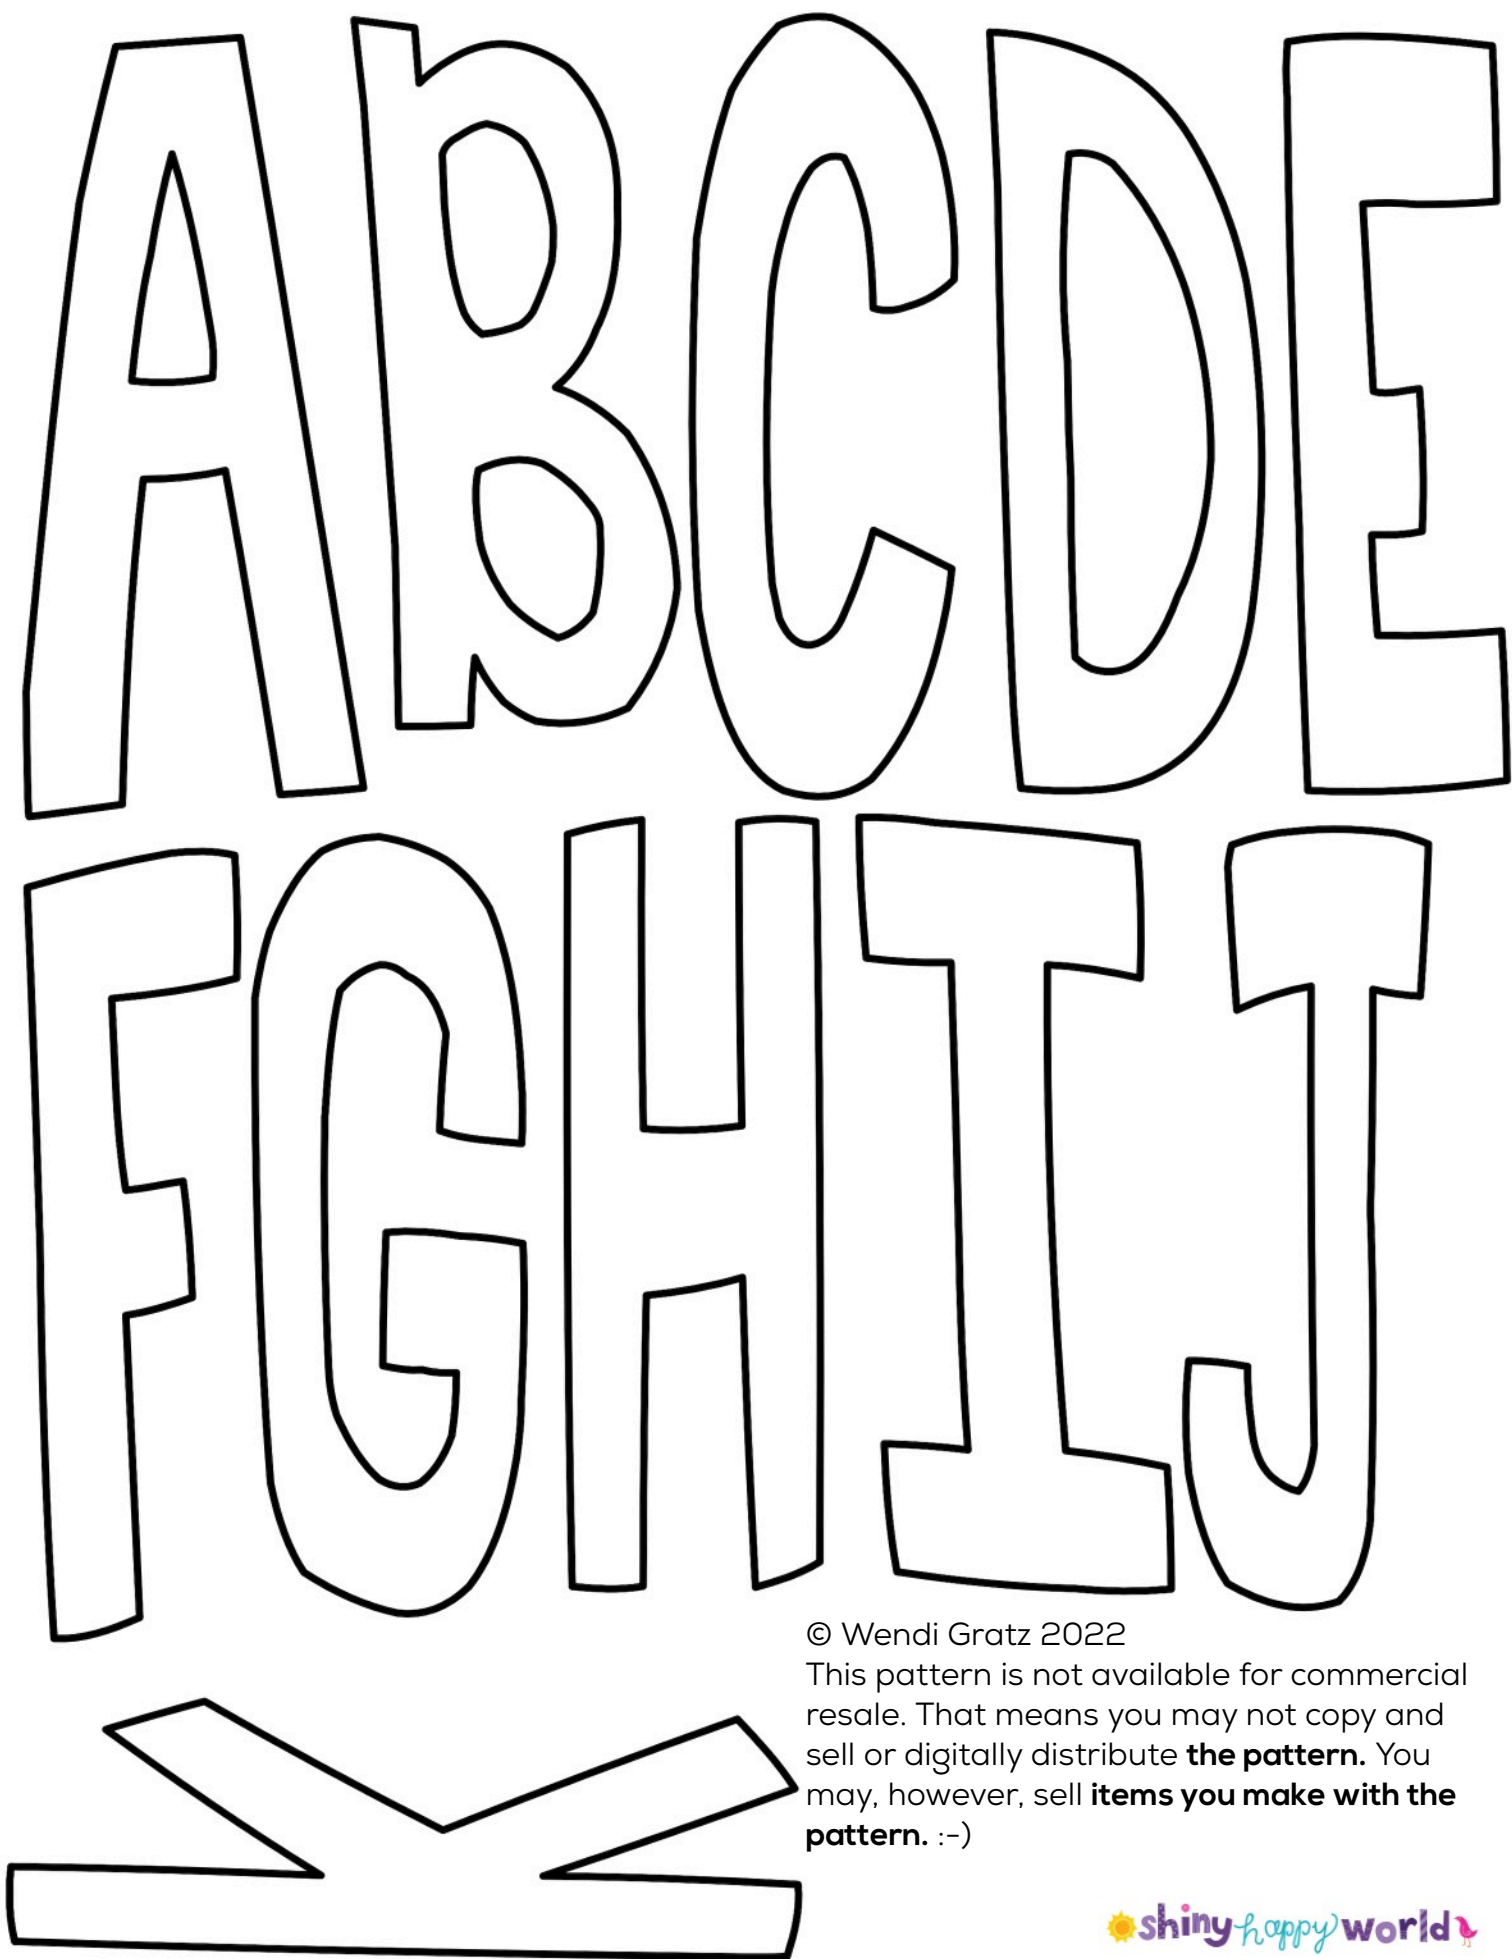 ABCDE
FGHIJ
K
© Wendi Gratz 2022
This pattern is not available for commercial
resale. That means you may not copy and
sell or digitally distribute the pattern. You
may, however, sell items you make with the
pattern. :-)
shiny happy world